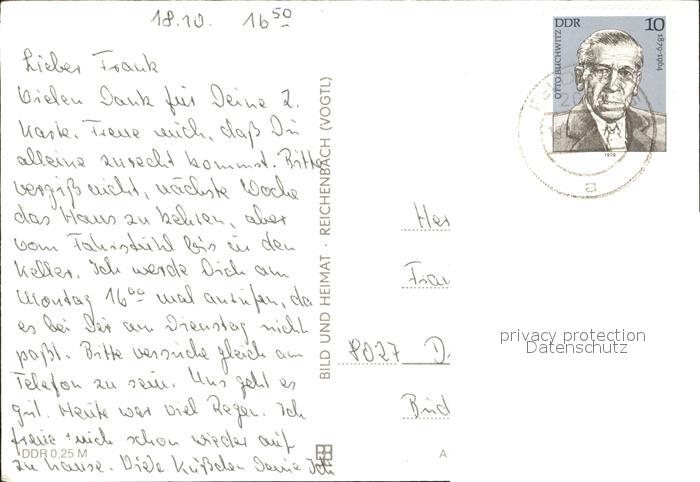 18.10. 16⁵⁰
Lieber Frank
Vielen Dank für Deine 2.
Karte. Freue mich, daß Du
alleine zurecht kommst. Bitte
vergiß nicht, nächste Woche
das Haus zu kehren, aber
vom Fahrstuhl bis in den
Keller. Ich werde Dich am
Montag 16⁰⁰ mal anrufen, da
es bei Dir am Dienstag nicht
paßt. Bitte versuche gleich am
Telefon zu sein. Uns geht es
gut. Heute war viel Regen. Ich
freue mich schon wieder auf
zu Hause. Viele
DDR 0,25 M
BILD UND HEIMAT · REICHENBACH (VOGTL)
A
DDR 10
OTTO BUCHWITZ
1879-1964
1979
a
Her
Fra
8027 D
privacy protection
Datenschutz